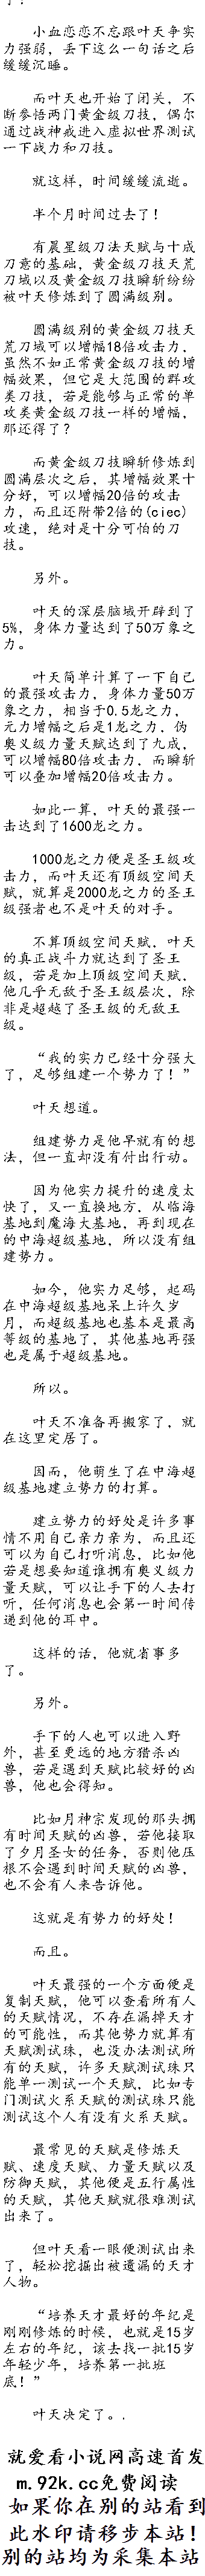 小血恋恋不忘跟叶天争实
力强弱，丢下这么一句话之后
缓缓沉睡。
而叶天也开始了闭关，不
断参悟两门黄金级刀技，偶尔
通过战神戒进入虚拟世界测试
一下战力和刀技。
就这样，时间缓缓流逝。
半个月时间过去了！
有晨星级刀法天赋与十成
刀意的基础，黄金级刀技天荒
刀域以及黄金级刀技瞬斩纷纷
被叶天修炼到了圆满级别。
圆满级别的黄金级刀技天
荒刀域可以增幅18倍攻击力，
虽然不如正常黄金级刀技的增
幅效果，但它是大范围的群攻
类刀技，若是能够与正常的单
攻类黄金级刀技一样的增幅，
那还得了？
而黄金级刀技瞬斩修炼到
圆满层次之后，其增幅效果十
分好，可以增幅20倍的攻击
力，而且还附带2倍的(ciec)
攻速，绝对是十分可怕的刀
技。
另外。
叶天的深层脑域开辟到了
5%，身体力量达到了50万象之
力。
叶天简单计算了一下自己
的最强攻击力，身体力量50万
象之力，相当于0.5龙之力，
元力增幅之后是1龙之力，伪
奥义级力量天赋达到了九成，
可以增幅80倍攻击力，而瞬斩
可以叠加增幅20倍攻击力。
如此一算，叶天的最强一
击达到了1600龙之力。
1000龙之力便是圣王级攻
击力，而叶天还有顶级空间天
赋，就算是2000龙之力的圣王
级强者也不是叶天的对手。
不算顶级空间天赋，叶天
的真正战斗力就达到了圣王
级，若是加上顶级空间天赋，
他几乎无敌于圣王级层次，除
非是超越了圣王级的无敌王
级。
“我的实力已经十分强大
了，足够组建一个势力了！”
叶天想道。
组建势力是他早就有的想
法，但一直却没有付出行动。
因为他实力提升的速度太
快了，又一直换地方，从临海
基地到魔海大基地，再到现在
的中海超级基地，所以没有组
建势力。
如今，他实力足够，起码
在中海超级基地呆上许久岁
月，而超级基地也基本是最高
等级的基地了，其他基地再强
也是属于超级基地。
所以。
叶天不准备再搬家了，就
在这里定居了。
因而，他萌生了在中海超
级基地建立势力的打算。
建立势力的好处是许多事
情不用自己亲力亲为，而且还
可以为自己打听消息，比如他
若是想要知道谁拥有奥义级力
量天赋，可以让手下的人去打
听，任何消息也会第一时间传
递到他的耳中。
这样的话，他就省事多
了。
另外。
手下的人也可以进入野
外，甚至更远的地方猎杀凶
兽，若是遇到天赋比较好的凶
兽，他也会得知。
比如月神宗发现的那头拥
有时间天赋的凶兽，若他接取
了夕月圣女的任务，否则他压
根不会遇到时间天赋的凶兽，
也不会有人来告诉他。
这就是有势力的好处！
而且。
叶天最强的一个方面便是
复制天赋，他可以查看所有人
的天赋情况，不存在漏掉天才
的可能性，而其他势力就算有
天赋测试珠，也没办法测试所
有的天赋，许多天赋测试珠只
能单一测试一个天赋，比如专
门测试火系天赋的测试珠只能
测试这个人有没有火系天赋。
最常见的天赋是修炼天
赋、速度天赋、力量天赋以及
防御天赋，其他便是五行属性
的天赋，其他天赋就很难测试
出来了。
但叶天看一眼便测试出来
了，轻松挖掘出被遗漏的天才
人物。
“培养天才最好的年纪是
刚刚修炼的时候，也就是15岁
左右的年纪，该去找一批15岁
年轻少年，培养第一批班
底！”
叶天决定了。.
就爱看小说网高速首发
m.92k.cc免费阅读
如果你在别的站看到
此水印请移步本站！
别的站均为采集本站